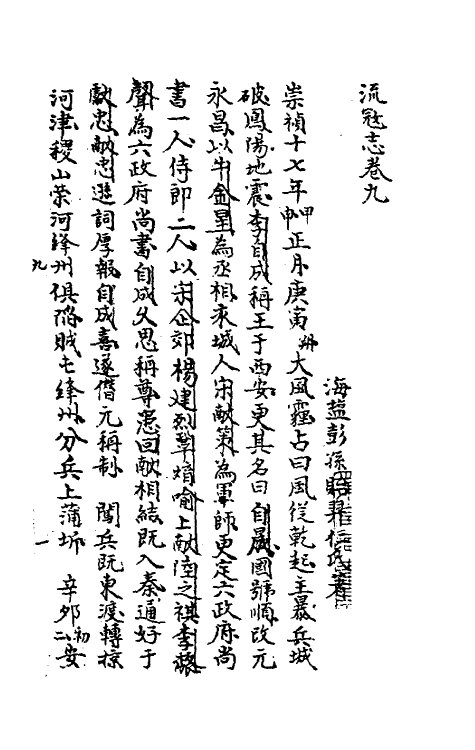 流寇志卷九
海盐彭孫貽
崇禎十七年甲申正月庚寅朔大風霾占曰風従乾起主暴兵城
破鳳陽地震李自成稱王于西安更其名曰自晟國號順改元
永昌以牛金星為丞相永城人宋献策為軍師更定六政府尚
書一人侍郎二人以宋企郊楊建烈鞏焴喻上猷陸之祺李
為六政府尚書自成久思稱尊慮回献相結既入秦通好于
献忠献忠遜詞厚報自成喜遂僭元稱制 闖兵既東渡轉掠
河津稷山荣河絳州俱陥賊屯絳州分兵上蒲坼 辛夘初二安
九
一